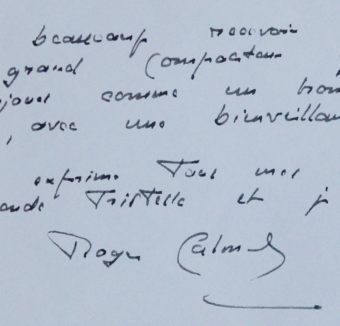 beaucoup recevoir
grand Compositeur
comme un
, avec une bienveillan
exprime Tous mes
Tristesse et j
Roger Calmel